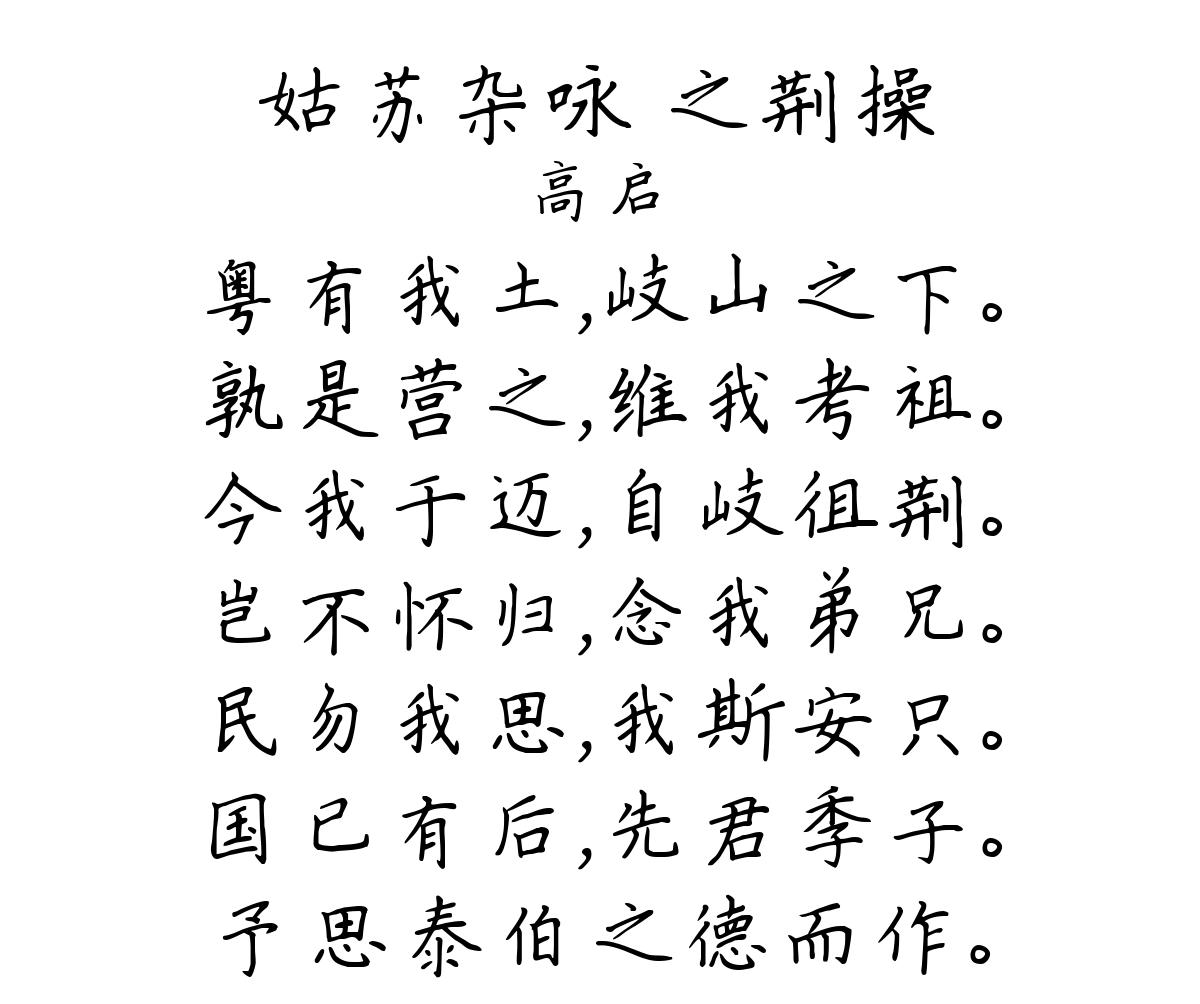 姑苏杂咏 之荆操
高启
粤有我土,岐山之下。
孰是营之,维我考祖。
今我于迈,自岐徂荆。
岂不怀归,念我弟兄。
民勿我思,我斯安只。
国已有后,先君季子。
予思泰伯之德而作。